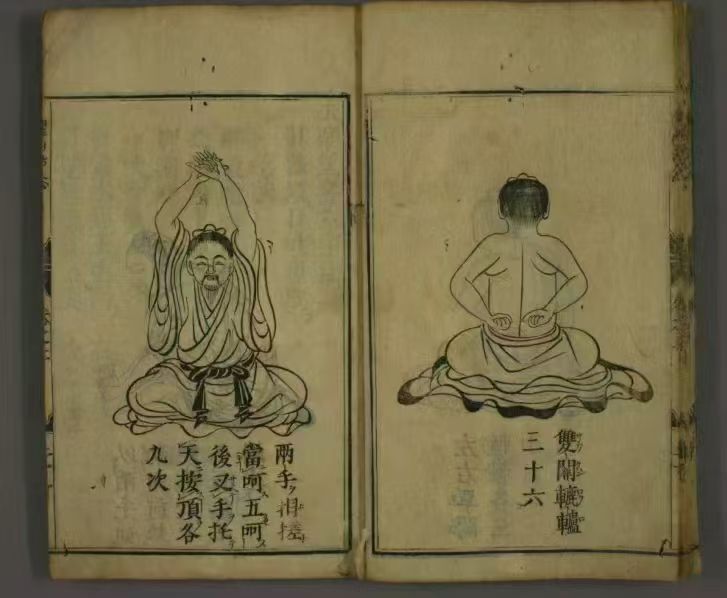 雙關轆轤
三十六
兩手相搓
當呵五呵
後叉手托
天按頂各
九次